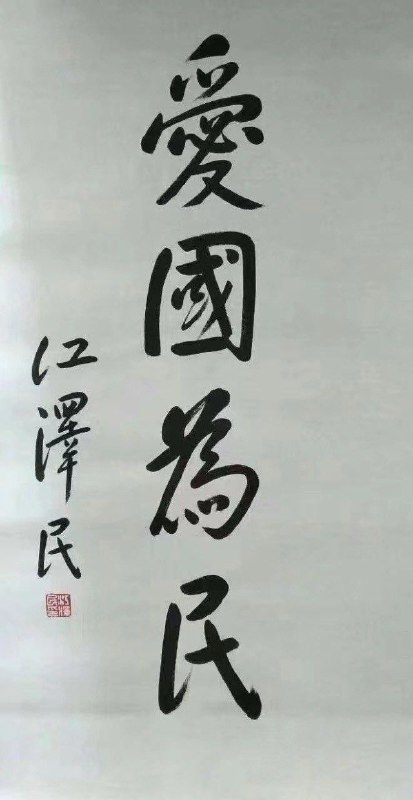 愛國為民
江澤民